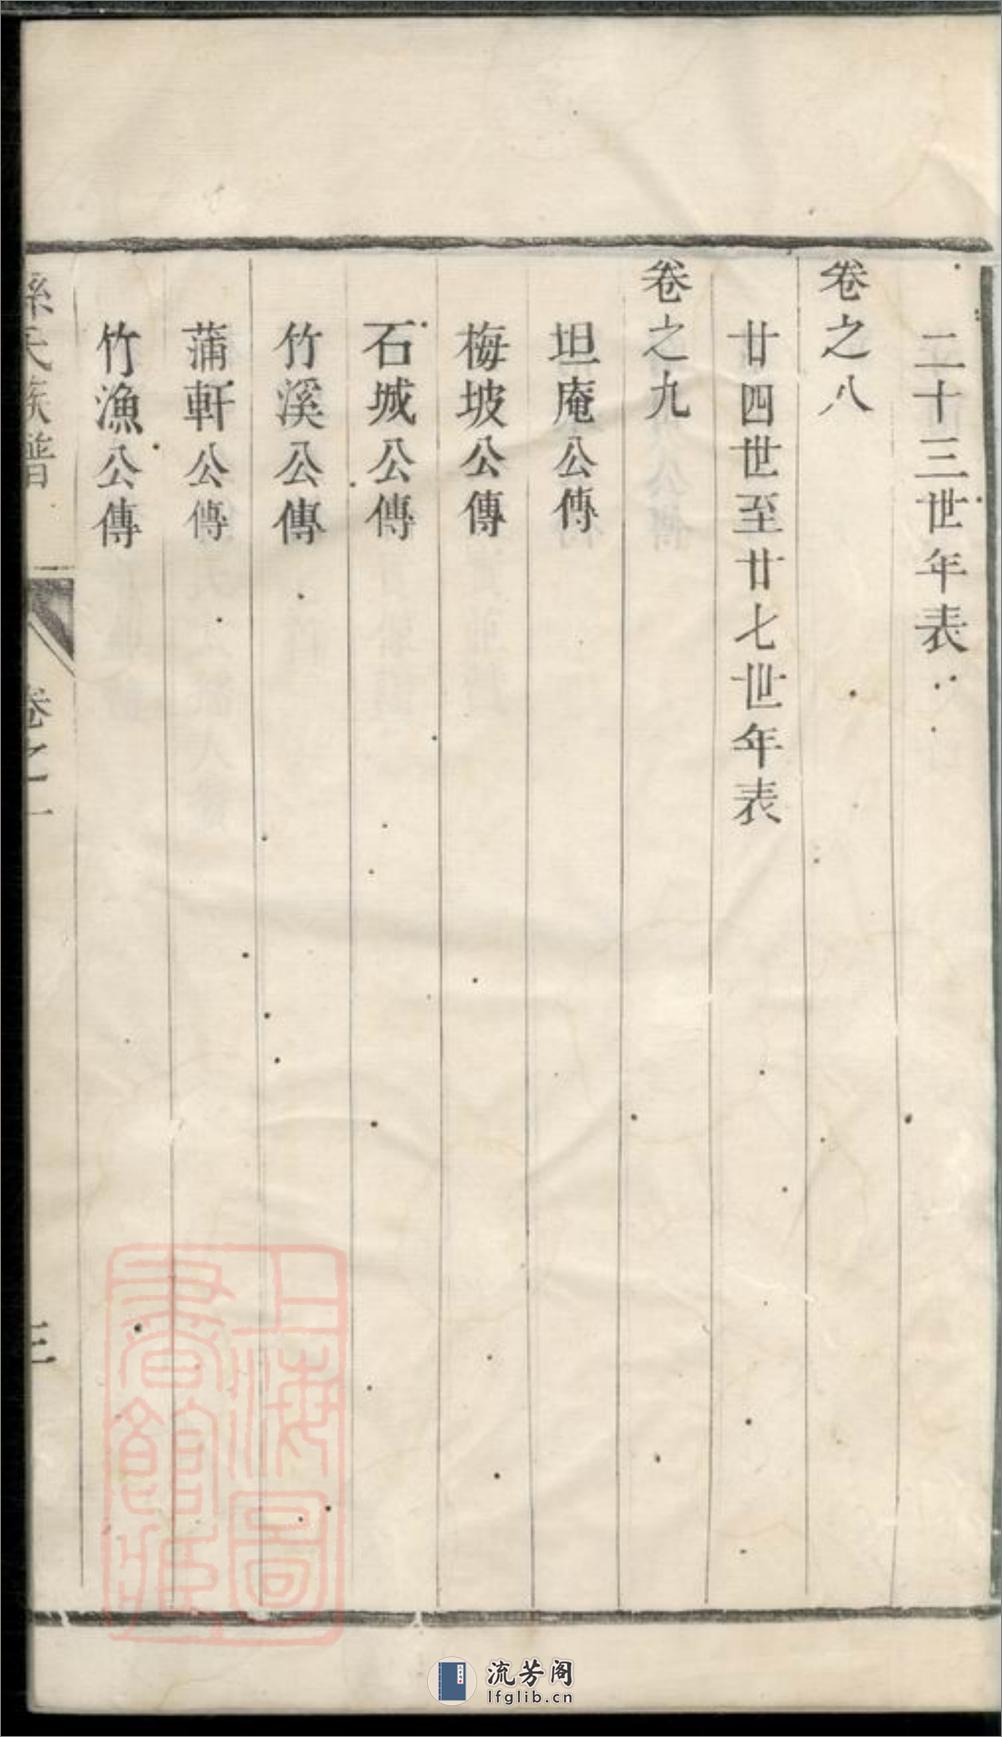 二十三世年表
卷之八
廿四世至廿七世年表
卷之九
坦庵公傳
梅坡公傳
石城公傳
竹溪公傳
蒲軒公傳
竹漁公傳
孫氏族譜
卷之一
三
上海圖
書館藏
流芳阁
lfglib.cn